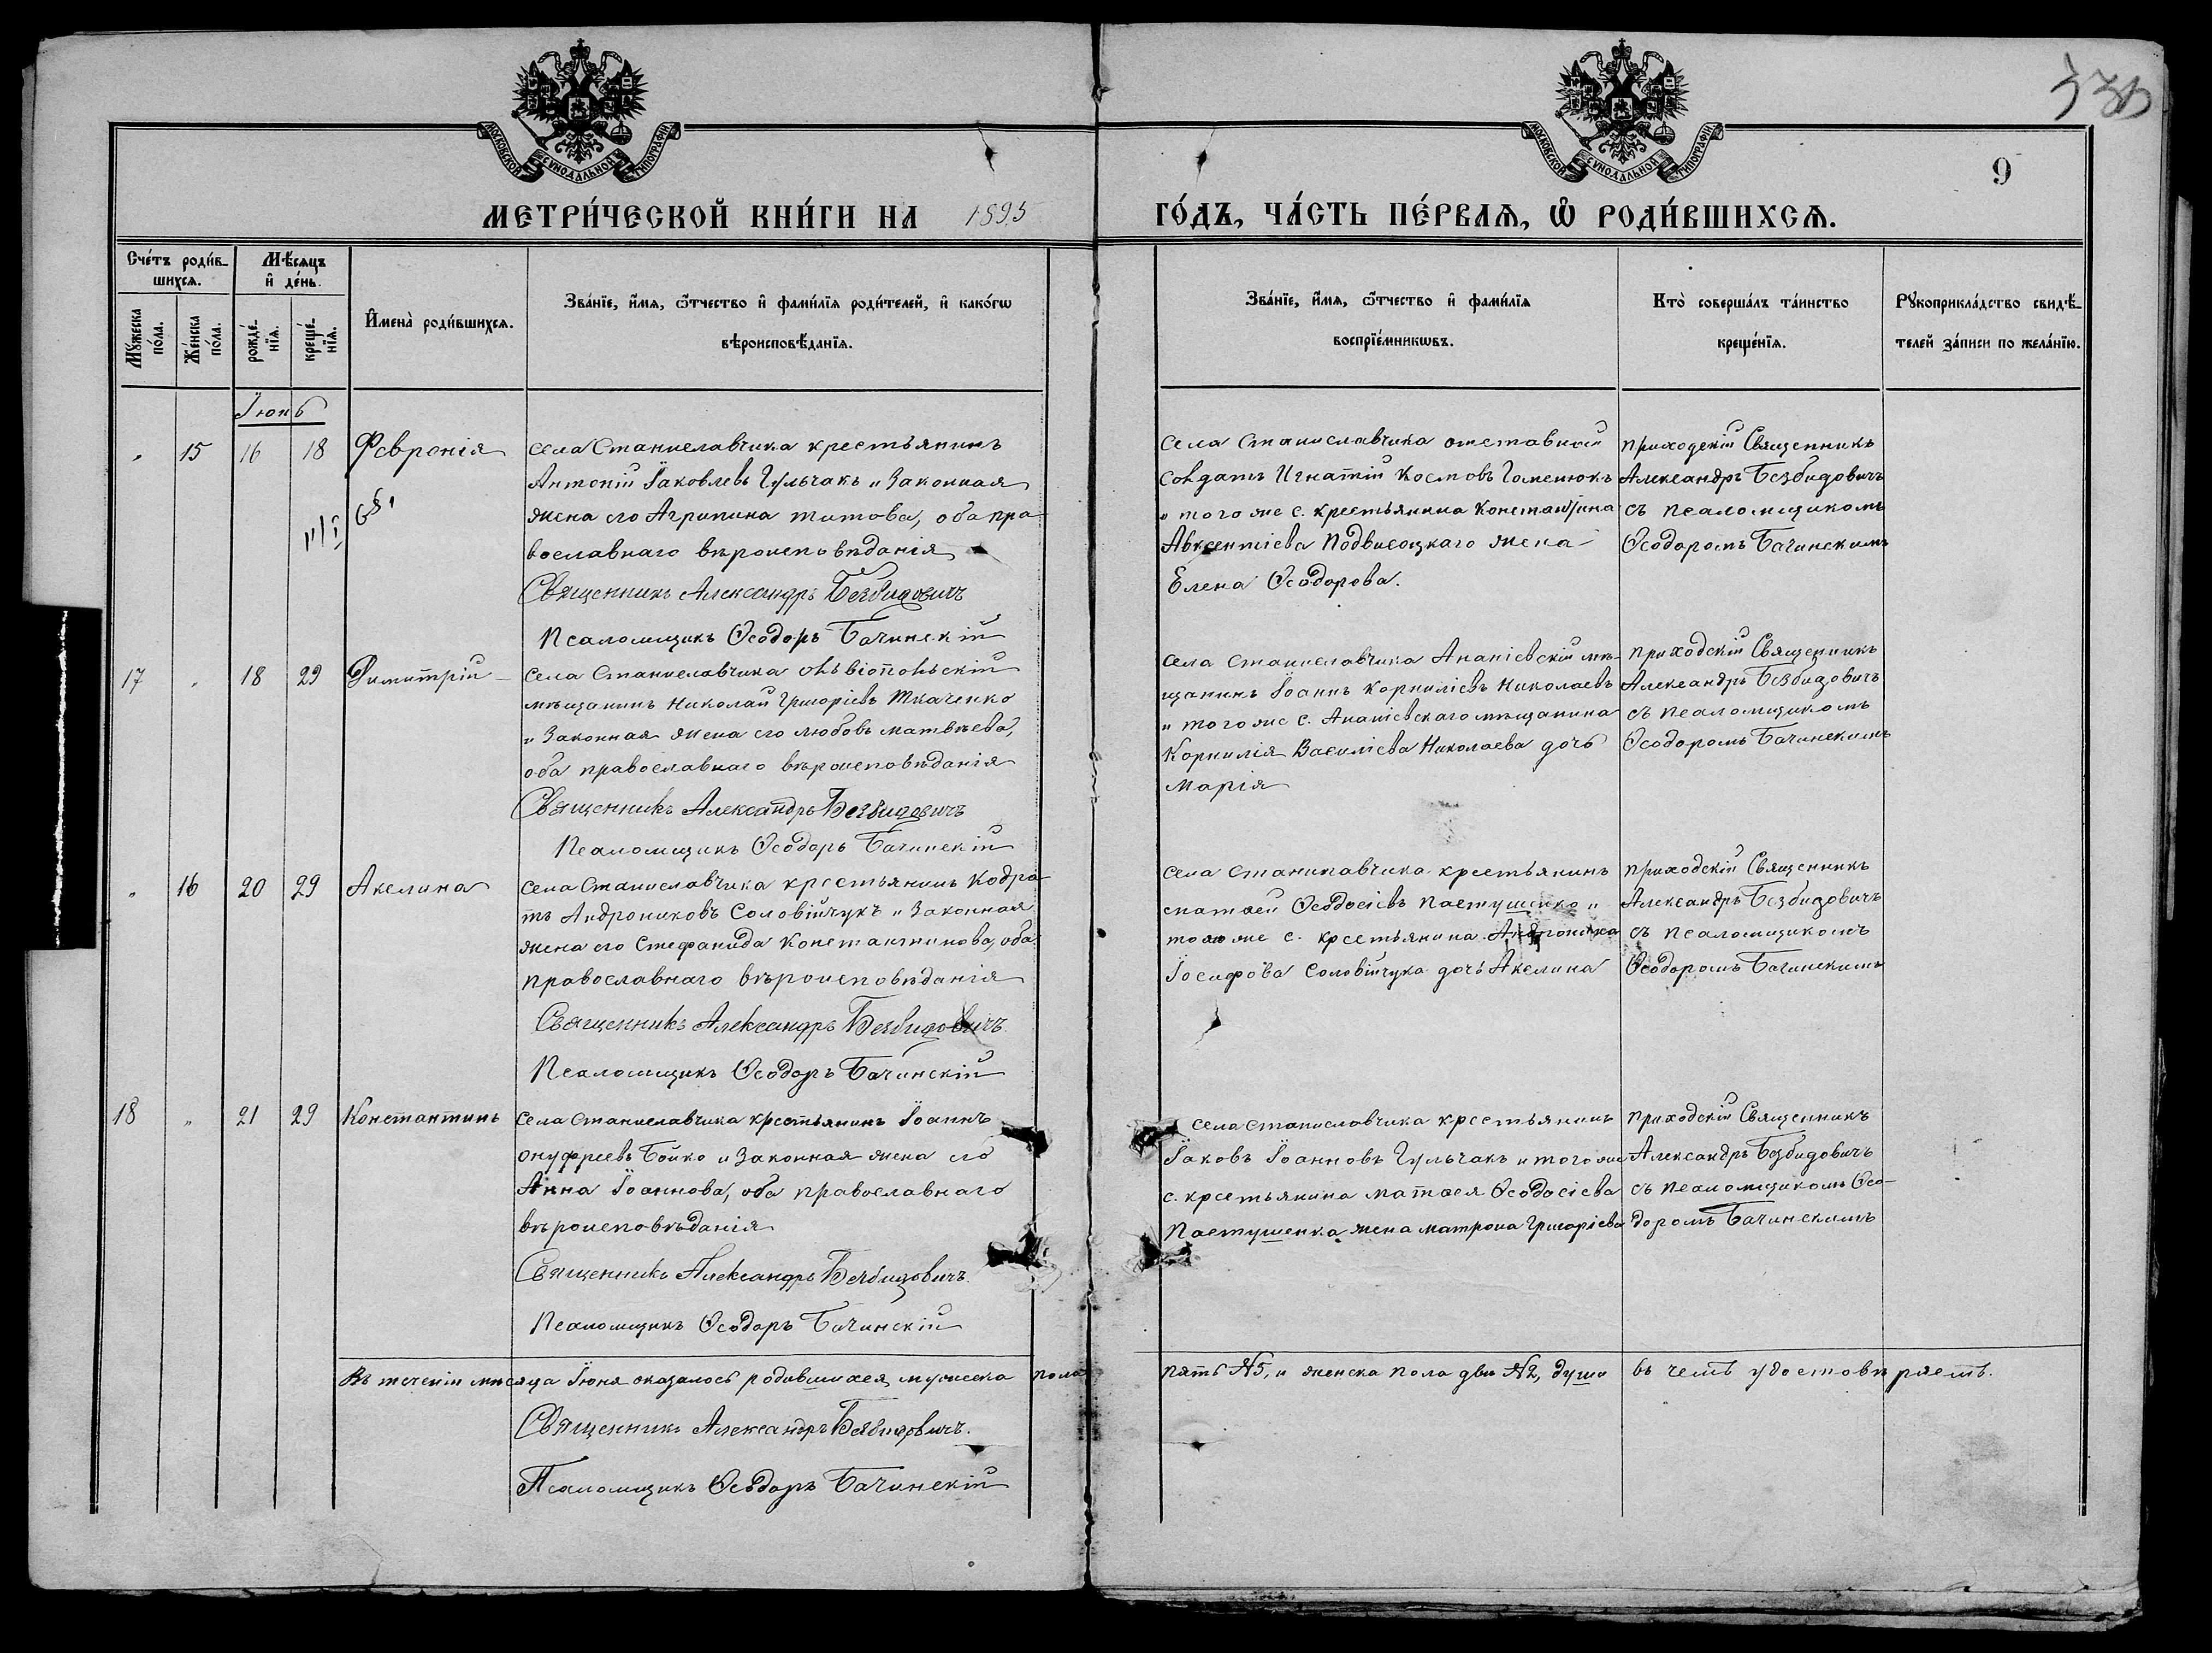 МОСКОВСКОЙ СУНОДАЛЬНОЙ ТИПОГРАФІИ
МОСКОВСКОЙ СУНОДАЛЬНОЙ ТИПОГРАФІИ
9
МЕТРИ́ЧЕСКОЙ КНИ́ГИ НА 1895 ГО́ДЪ, ЧА́СТЬ ПЕ́РВАѦ, Ѡ РОДИ́ВШИХСѦ.
Сче́тъ роди́в-
шихсѧ.
Мꙋ́жеска
по́ла.
Же́нска
по́ла.
Мѣ́сѧцъ
и҆ де́нь.
рожде́-
нїѧ.
креще́-
нїѧ.
И҆мена̀ роди́вшихсѧ.
Зва́нїе, и҆́мѧ, ѻ҆́тчество и҆ фами́лїѧ роди́телей, и҆ како́гѡ
вѣроисповѣ́данїѧ.
Зва́нїе, и҆́мѧ, ѻ҆́тчество и҆ фами́лїѧ
воспрїе́мникѡвъ.
Кто̀ соверша́лъ та́инство
креще́нїѧ.
Рꙋкоприкла́дство свидѣ́-
телей за́писи по жела́нїю.
Іюнь
" 15 16 18 Февронія
села Станиславчика крестьянинъ
Антоній Іаковлевъ Гульчакъ и законная
жена его Агрипина Титова, оба пра-
вославнаго вѣроисповѣданія
Священникъ Александръ Безбидовичъ
Псаломщикъ Ѳеодоръ Бачинскій
села Станиславчика отставной
солдатъ Игнатій Костовъ Гоменюкъ
и того же с. крестьянина Константина
Авксентіева Подвисоцкаго жена
Елена Ѳеодорова.
приходскій Священникъ
Александръ Безбидовичъ
съ псаломщикомъ
Ѳеодоромъ Бачинскимъ
17 " 18 29 Димитрій
села Станиславчика ольвіопольскій
мѣщанинъ Николай Григоріевъ Ткаченко
и законная жена его Любовь Матвѣева,
оба православнаго вѣроисповѣданія
Священникъ Александръ Безбидовичъ
Псаломщикъ Ѳеодоръ Бачинскій
села Станиславчика Ананіевскій мѣ-
щанинъ Іоаннъ Корниліевъ Николаевъ
и того же с. Ананіевскаго мѣщанина
Корнилія Василіева Николаева дочь
Марія
приходскій Священникъ
Александръ Безбидовичъ
съ псаломщикомъ
Ѳеодоромъ Бачинскимъ
" 16 20 29 Акелина
села Станиславчика крестьянинъ Кодра-
тъ Андрониковъ Соловійчукъ и законная
жена его Стефанида Константинова, оба
православнаго вѣроисповѣданія
Священникъ Александръ Безбидовичъ
Псаломщикъ Ѳеодоръ Бачинскій
села Станиславчика крестьянинъ
Матѳей Ѳеодосіевъ Пастушенко и
того же с. крестьянина Андроника
Іосифова Соловійчука дочь Акелина
приходскій Священникъ
Александръ Безбидовичъ
съ псаломщикомъ
Ѳеодоромъ Бачинскимъ
18 " 21 29 Константинъ
села Станиславчика крестьянинъ Іоаннъ
Онуфреевъ Бойко и законная жена его
Анна Іоаннова, оба православнаго
вѣроисповѣданія
Священникъ Александръ Безбидовичъ
Псаломщикъ Ѳеодоръ Бачинскій
села Станиславчика крестьянинъ
Іаковъ Іоанновъ Гульчакъ и того же
с. крестьянина Матѳея Ѳеодосіева
Пастушенка жена Матрона Григоріева
приходскій Священникъ
Александръ Безбидовичъ
съ псаломщикомъ Ѳео-
доромъ Бачинскимъ
Въ теченіи мѣсяца Іюня оказалось родившихся мужеска пола пять №5, и женска пола двѣ №2, души въ чемъ удостовѣряемъ.
Священникъ Александръ Безбидовичъ.
Псаломщикъ Ѳеодоръ Бачинскій